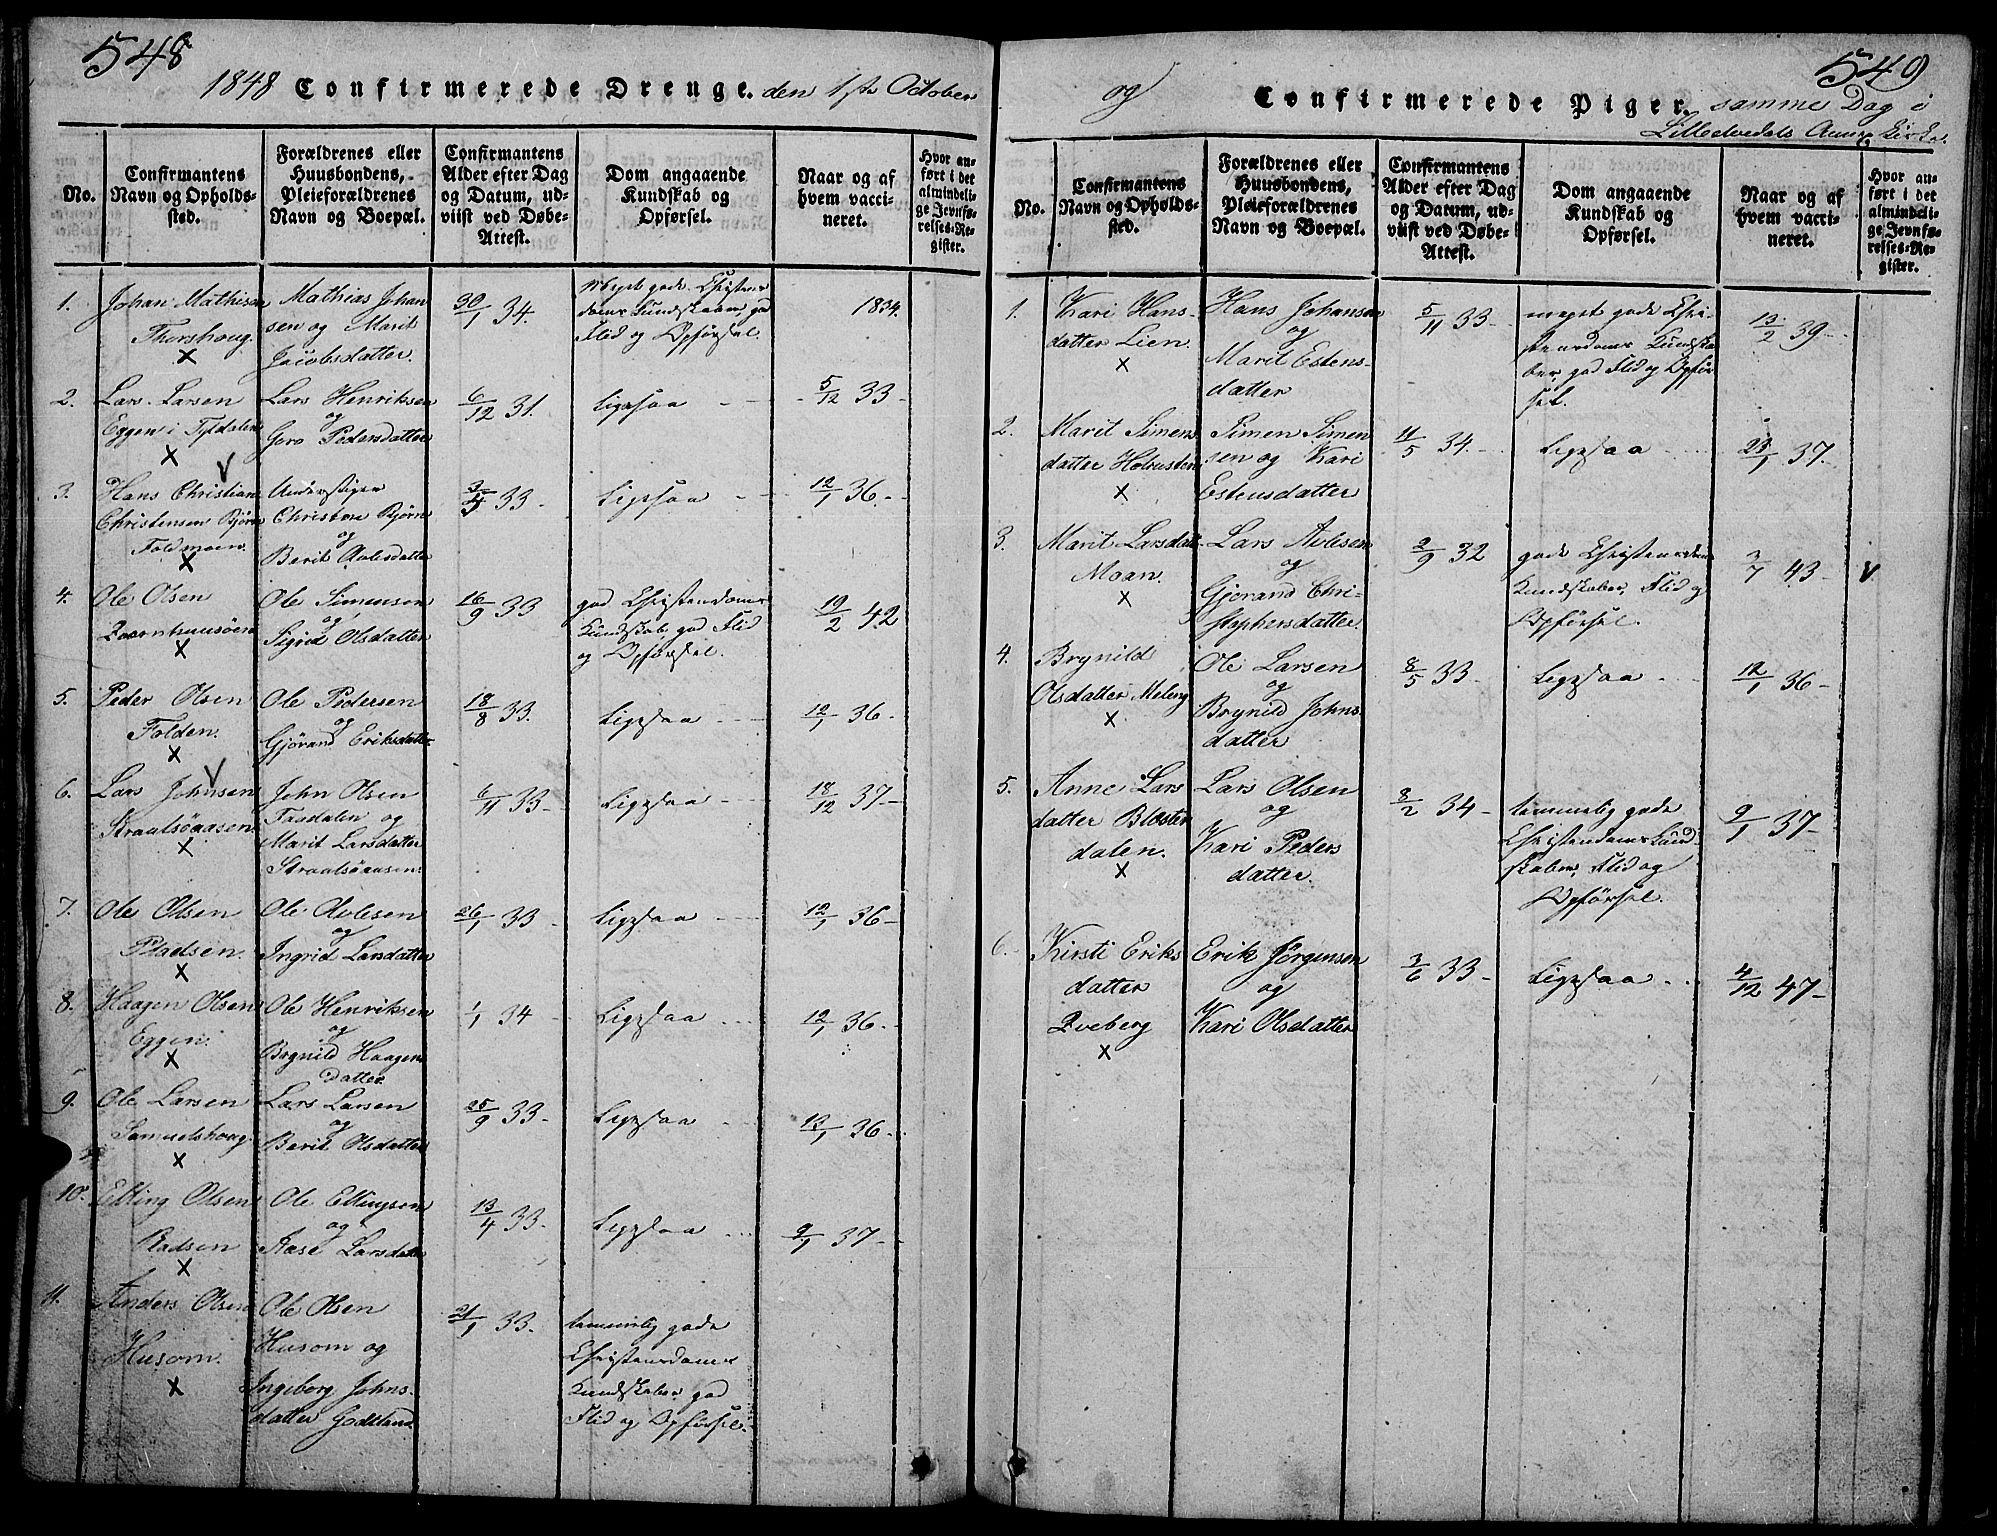 548
1848 Confirmerede Drenge. den 1ste October
No.
Confirmantens
Navn og Opholds-
sted.
Forældrenes eller
Huusbondens,
Pleieforældrenes
Navn og Boepæl.
Confirmantens
Alder efter Dag
og Datum, ud-
viist ved Døbe-
Attest.
Dom angaaende
Kundskab og
Opførsel.
Naar og af
hvem vacci-
neret.
Hvor an-
ført i det
almindeli-
ge Jevnfø-
relses-Re-
gister.
1. Johan Mathisen
Thorshoug.
X
Mathias Johan
sen og Marit
Jacobsdatter.
30/1 34.
meget gode Christen
doms Kundskaber, god
Flid og Opførsel.
1834.
2. Lars Larsen
Eggen i Tyldalen
X
Lars Henriksen
og
Guro Pedersdatter
6/12 31.
Ligesaa
5/12 33
3. Hans Christian
Christensen Bjørn
Foldmoen.
X
Christen Bjørn
og
Berit Avlesdatter
33
Ligesaa
12/1 36.
4. Ole Olsen
X
Ole Simensen
og
Sigrid Olsdatter
16/9 33
god Christendoms
Kundskab, god Flid
og Opførsel.
19/2 42
5. Peder Olsen
Folden.
X
Ole Pedersen
og
Gjørand Eriksdatter
18/8 33.
Ligesaa
12/1 36.
6. Lars Johnsen
Straalsøaasen.
X
John Olsen
Faadalen og
Marit Larsdatter
Straalsøaasen
6/11 33
Ligesaa
18/12 37
7. Ole Olsen
Pladsen.
X
Ole Avlesen
og
Ingrid Larsdatter
26/1 33
Ligesaa
12/1 36
8. Haagen Olsen
Eggen.
X
Ole Henriksen
og
Brynild Haagens
datter.
1/1 34
Ligesaa
12/1 36.
9. Ole Larsen
Samuelshoug.
X
Lars Larsen
og
Berit Olsdatter
25/9 33
Ligesaa
13/1 36
10. Elling Olsen
X
Ole Ellingsen
og
Aase Larsdatter
13/4 33
Ligesaa
9/1 37
11. Anders Olsen
Husom.
X
Ole Olsen
Husom og
Ingeborg Johns-
datter Godtland
21/1 33.
temmelig gode
Christendoms
Kundskaber, god
Flid og Opførsel.
549
og Confirmerede Piger samme Dag i
Lilleelvedals Annex kirke.
No.
Confirmantens
Navn og Opholds-
sted.
Forældrenes eller
Huusbondens,
Pleieforældrenes
Navn og Boepæl.
Confirmantens
Alder efter Dag
og Datum, ud-
viist ved Døbe-
Attest.
Dom angaaende
Kundskab og
Opførsel.
Naar og af
hvem vacci-
neret.
Hvor an-
ført i det
almindeli-
ge Jevnfø-
relses-Re-
gister.
1. Kari Hans-
datter Lien.
X
Hans Johansen
og
Marit Estens-
datter
5/11 33
meget gode Chri-
stendoms Kundska
ber god Flid og Opfør
sel.
13/2 39
2. Marit Simens
datter
X
Simen Simen
sen og Kari
Estensdatter
11/5 34.
Ligesaa
23/1 37.
3. Marit Larsdatt.
Moan.
X
Lars Avlesen
og
Gjørand Chri-
stophersdatter.
2/9 32
gode Christendoms
Kundskaber, Flid og
Opførsel.
43
4. Brynild
Olsdatter Meleng
X
Ole Larsen
og
Brynild Johns-
datter
8/5 33
Ligesaa
12/1 36
5. Anne Lars
datter Blæster
dalen.
X
Lars Olsen
og
Kari Peders
datter.
8/2 34
temmelig gode
Christendoms Kund
skaber, Flid og
Opførsel.
9/1 37
6. Kirsti Eriks
datter
Qveberg
X
Erik Jørgensen
og
Kari Olsdatter
33
Ligesaa
4/12 47